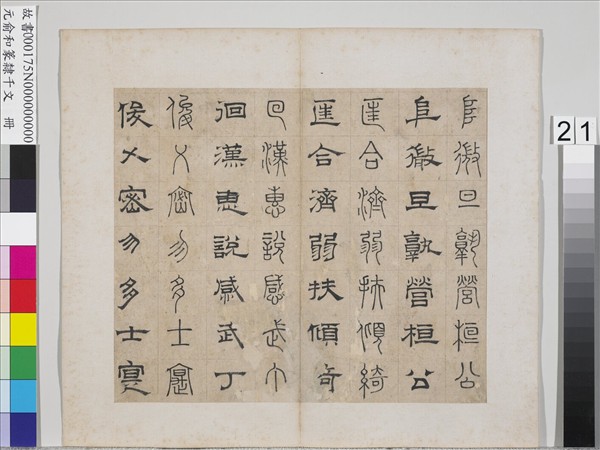 故書000175N000000000
元俞和篆隸千文 冊
阜微旦孰營桓公
阜微旦孰營桓公
匡合濟弱扶傾綺
匡合濟弱扶傾奇
回漢惠說感武丁
徊漢惠說感武丁
俊乂密勿多士寔
俊乂密勿多士寔
21